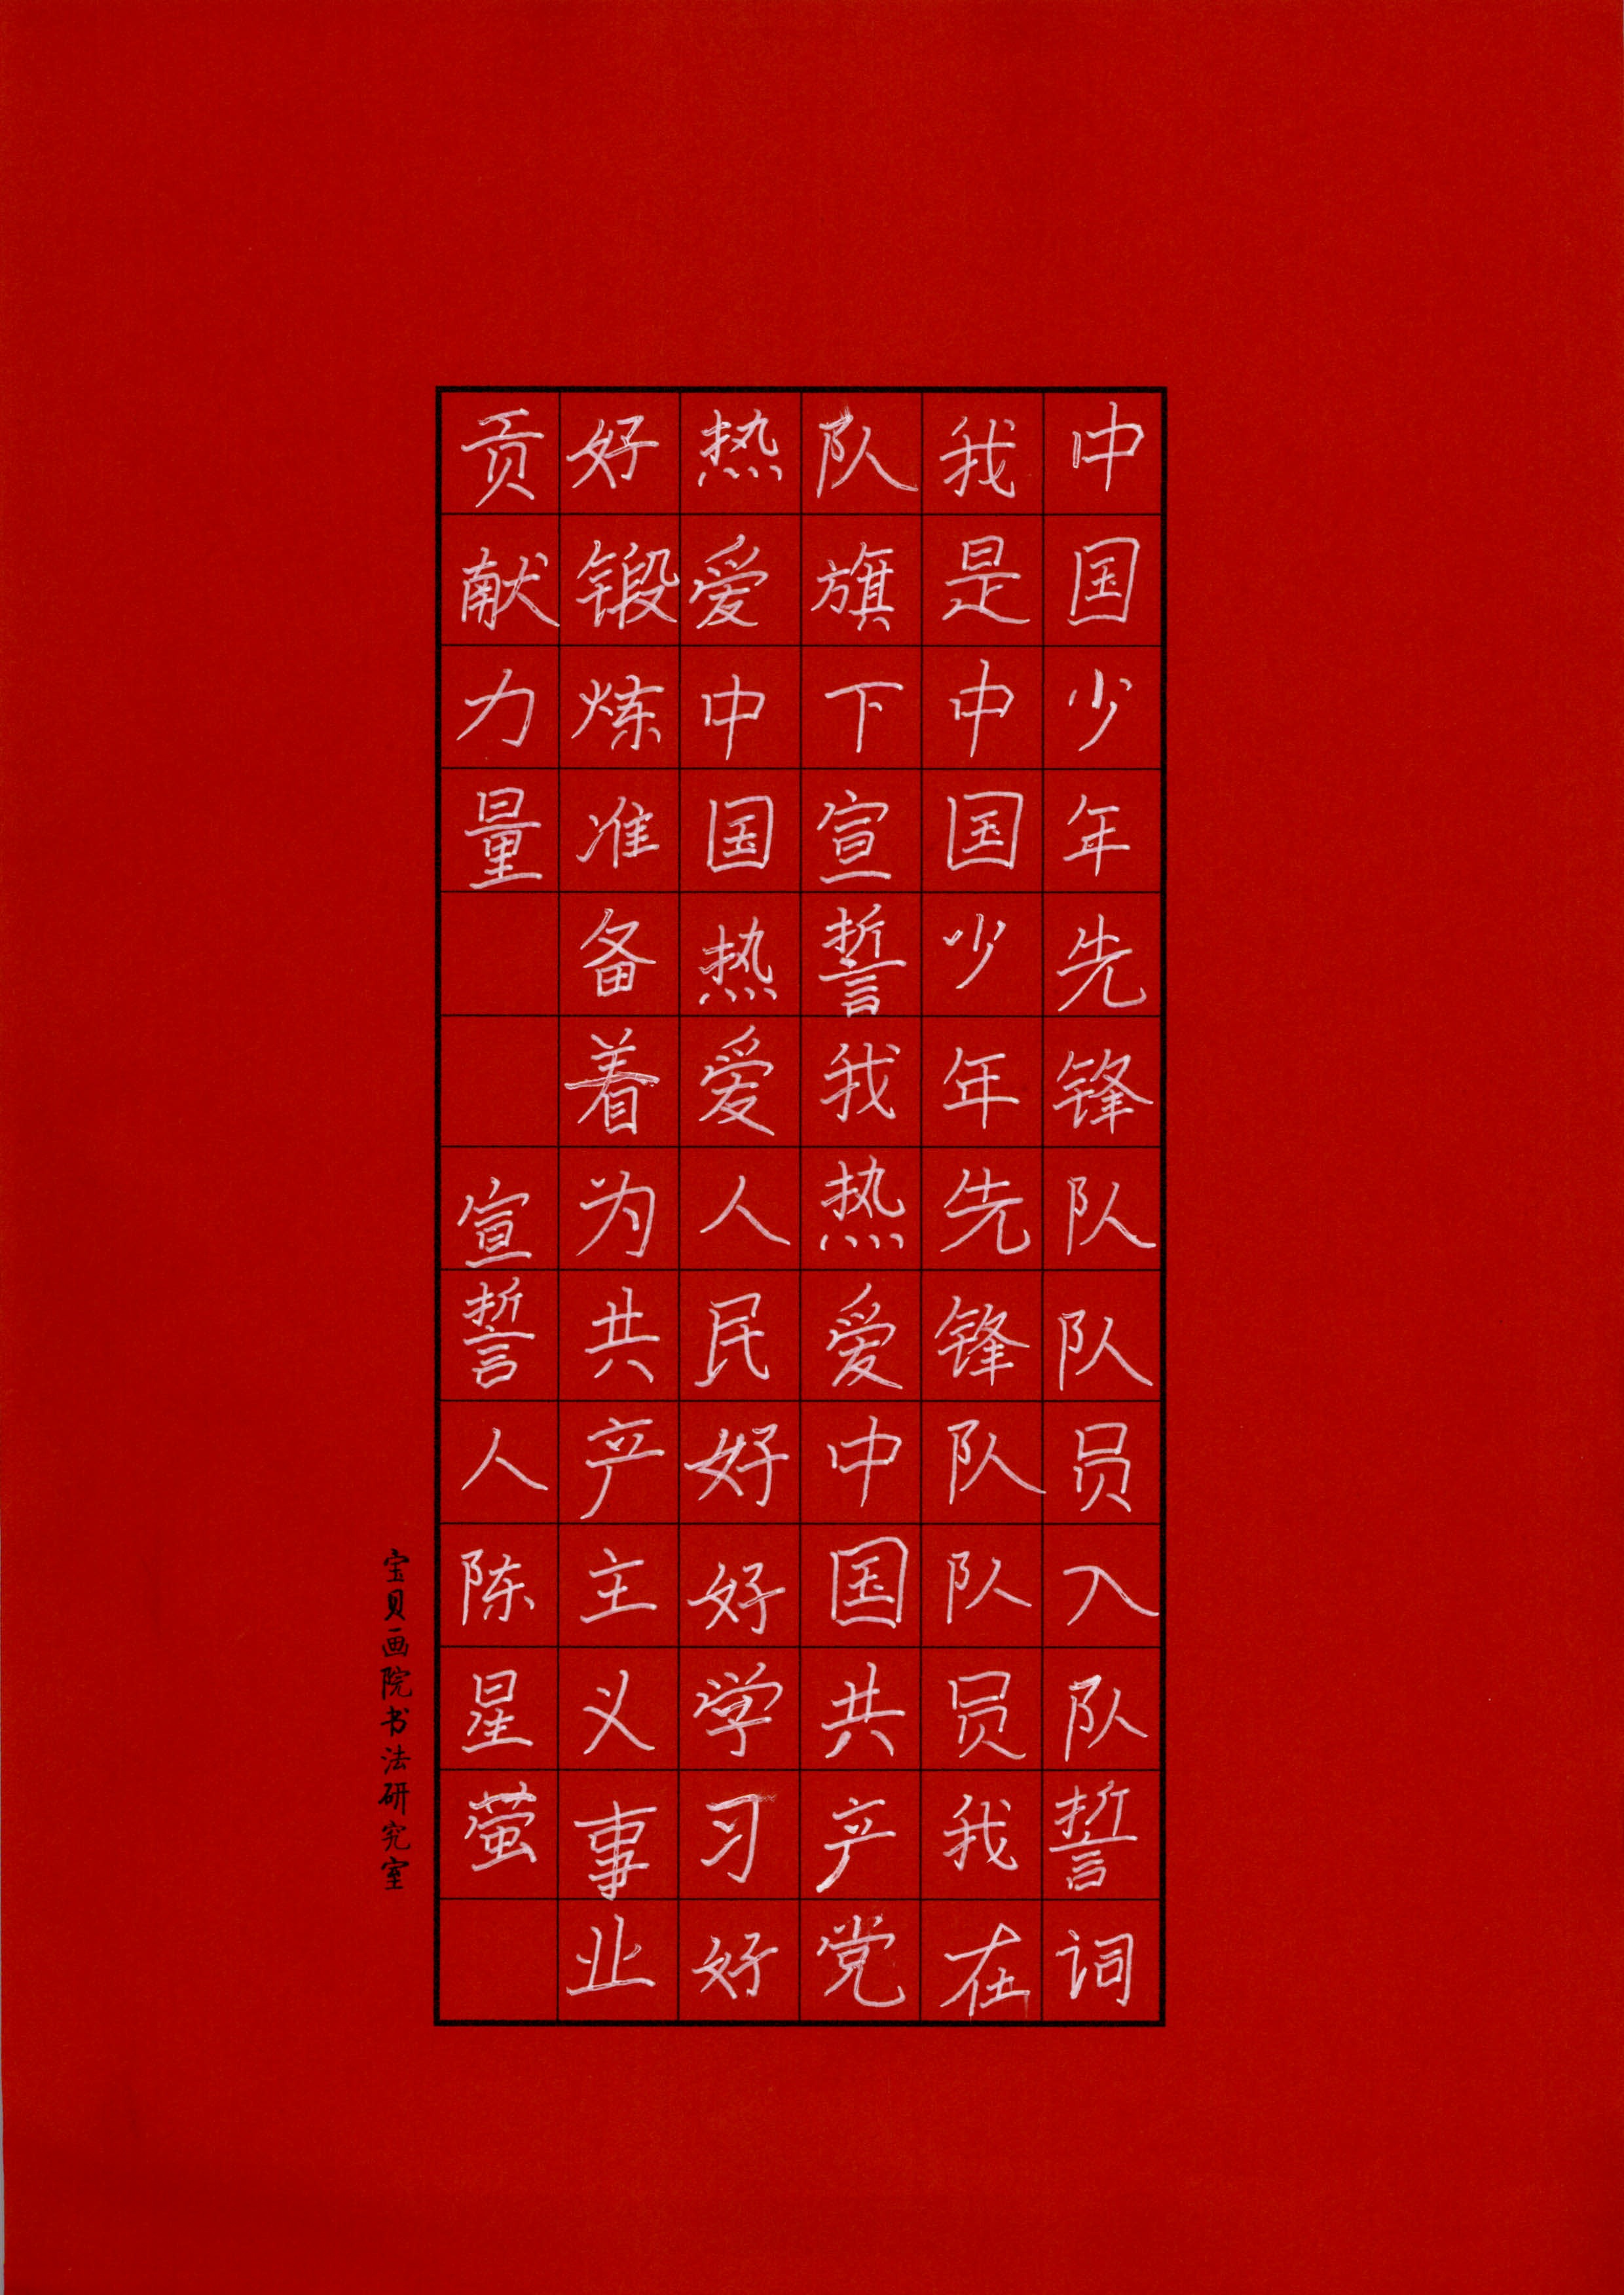 中国少年先锋队队员入队誓词
我是中国少年先锋队队员我在
队旗下宣誓我热爱中国共产党
热爱中国热爱人民好好学习好
好锻炼准备着为共产主义事业
贡献力量 宣誓人陈星萤
宝贝画院书法研究室